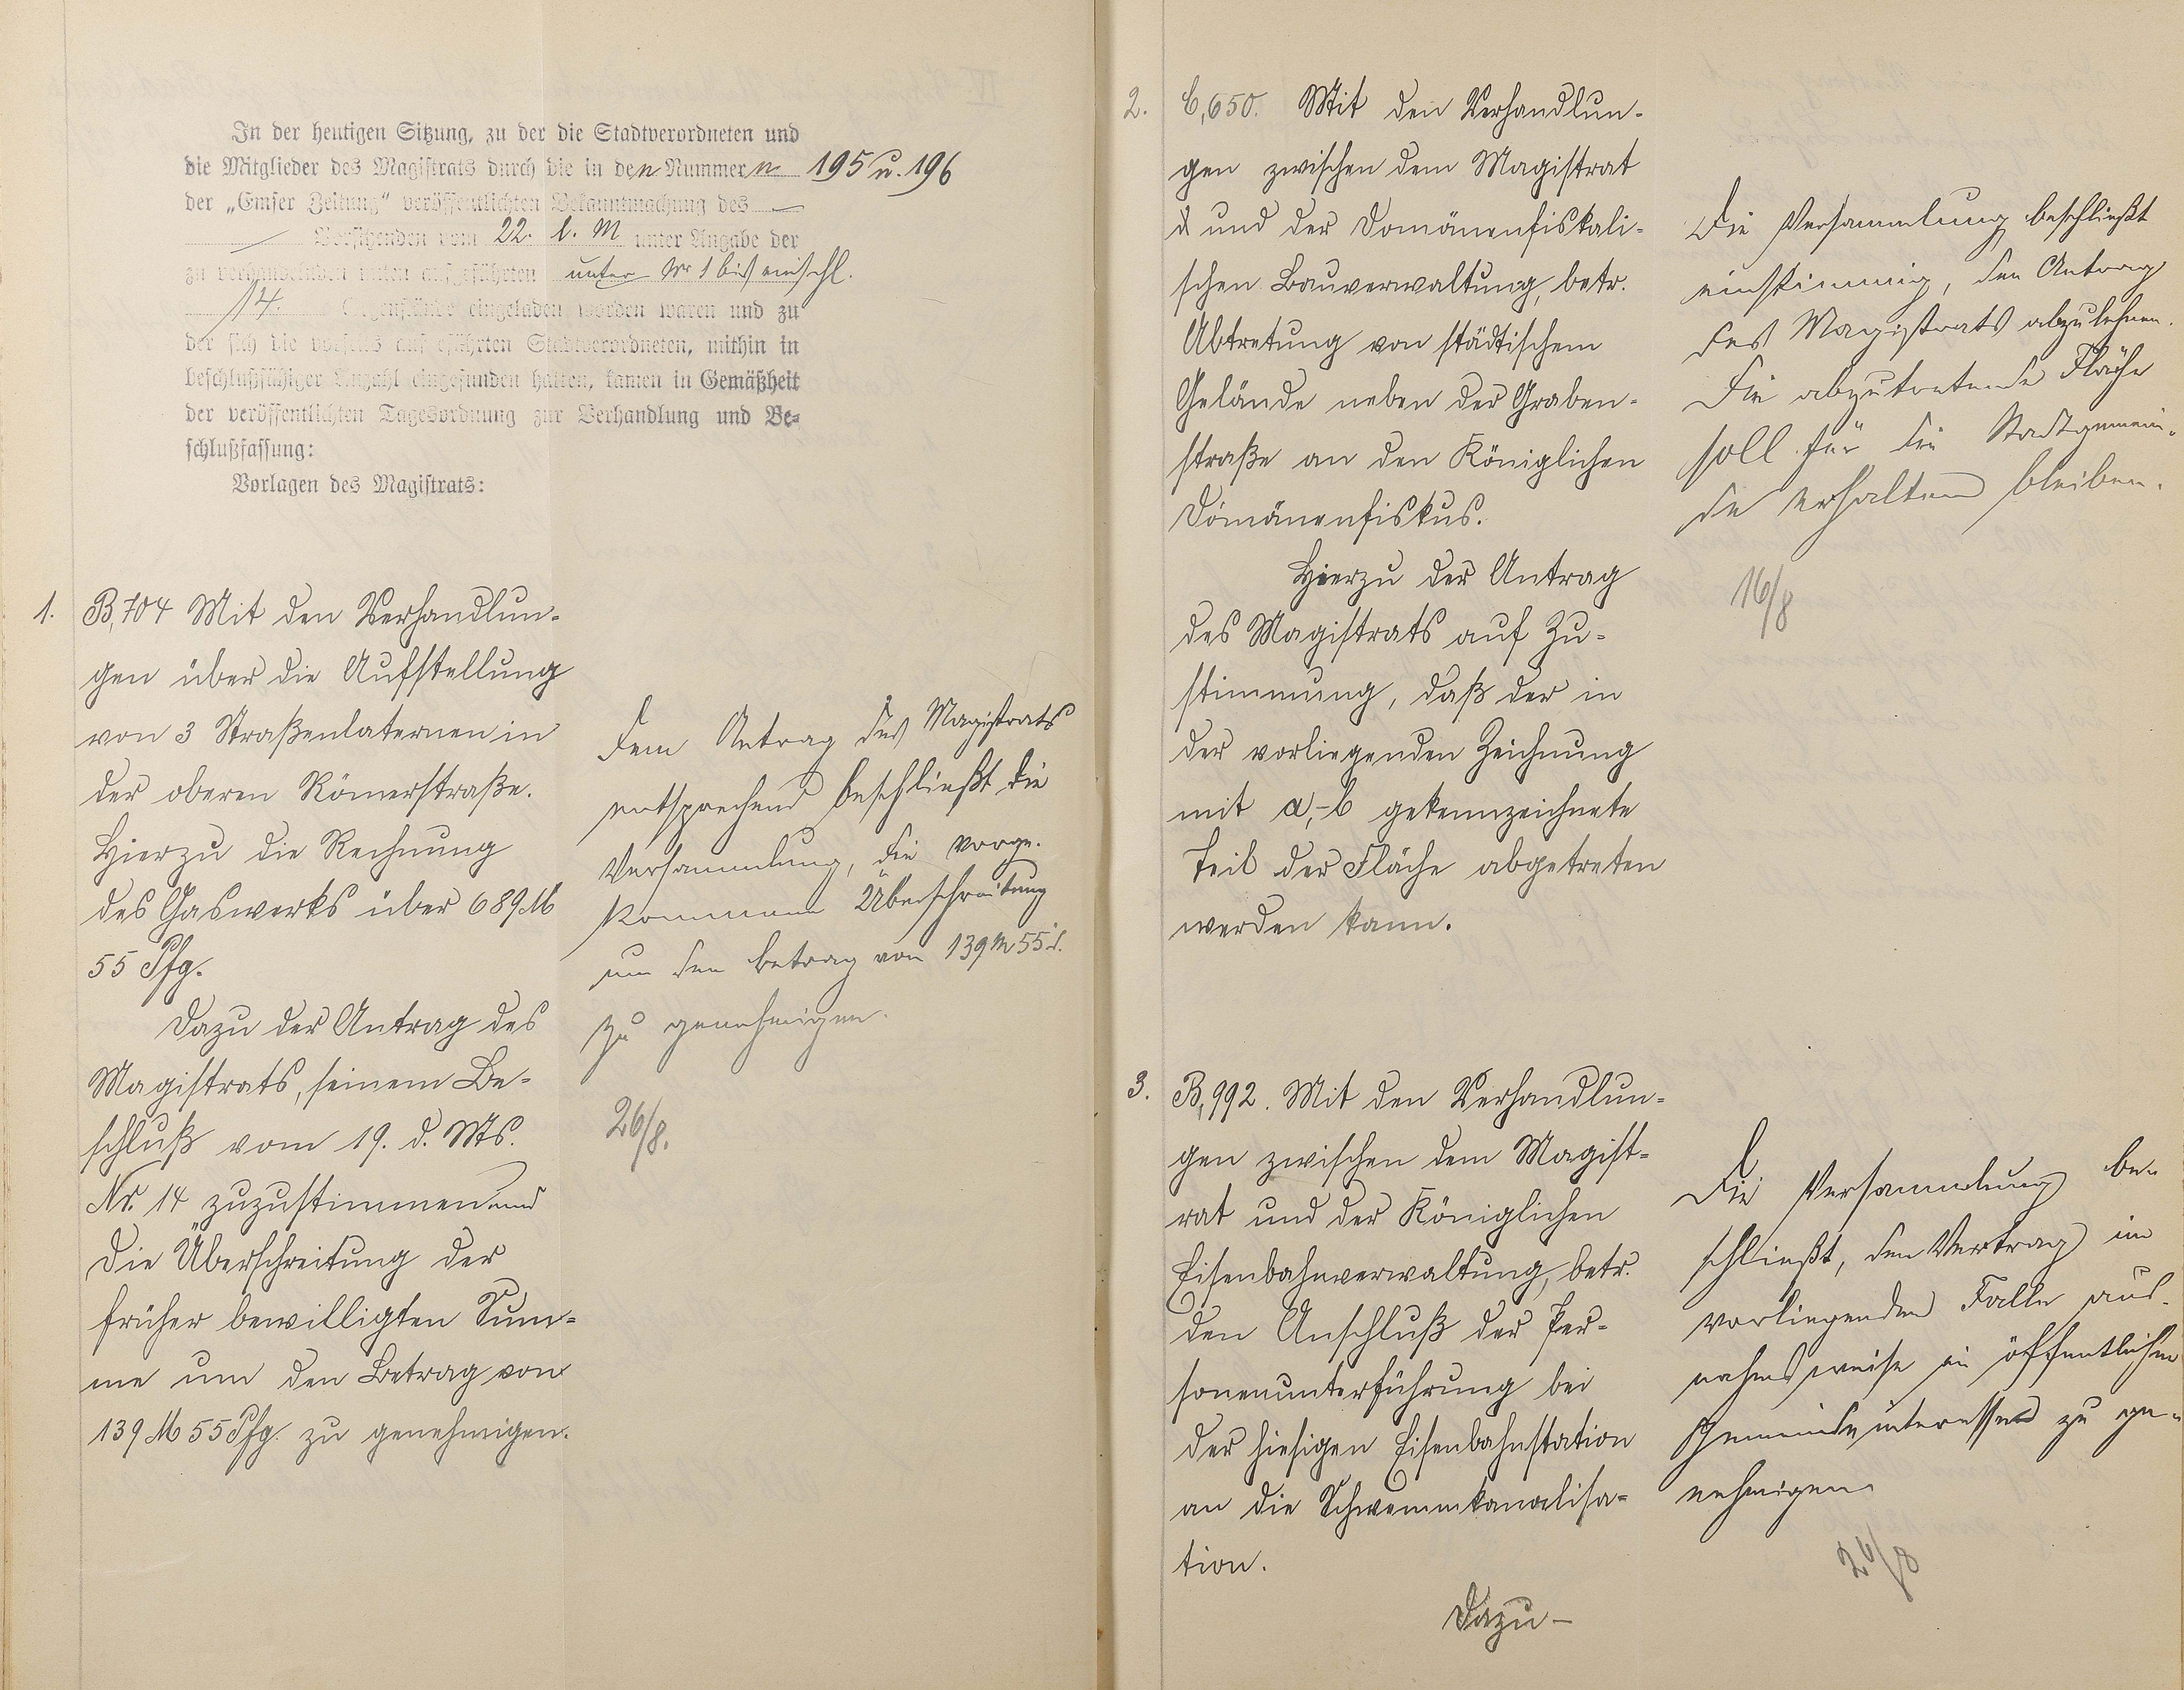 In der heutigen Sitzung, zu der die Stadtverordneten und
die Mitglieder des Magistrats durch die in den Nummern 195 u. 196
der „Emser Zeitung" veröffentlichten Bekanntmachung des —
— Vorsitzenden vom 22. l. M unter Angabe der
zu verhandelnden unten aufgeführten unter Nr 1 bis einschl.
14. Gegenstände eingeladen worden waren und zu
der sich die vorseits aufgeführten Stadtverordneten, mithin in
beschlußfähiger Anzahl eingefunden hatten, kamen in Gemäßheit
der veröffentlichten Tagesordnung zur Verhandlung und Be-
schlußfassung:
Vorlagen des Magistrats:
1. B, 704 Mit den Verhandlun-
gen über die Aufstellung
von 3 Straßenlaternen in
der oberen Römerstraße.
Hierzu die Rechnung
des Gaswerks über 689 M
55 Pfg.
Dazu der Antrag des
Magistrats, seinem Be-
schluß vom 19. d. Mts.
Nr. 14 zuzustimmen und
die Überschreitung der
früher bewilligten Sum-
me um den Betrag von
139 M 55 Pfg. zu genehmigen.
Dem Antrag des Magistrats
entsprechend beschließt die
Versammlung, die vorge-
kommene Überschreitung
um den Betrag von 139 M 55 d.
zu genehmigen.
26/8.
2. C, 650. Mit den Verhandlun-
gen zwischen dem Magistrat
und der Domänenfiskali-
schen Bauverwaltung, betr.
Abtretung von städtischem
Gelände neben der Graben-
straße an den Königlichen
Domänenfiskus.
Hierzu der Antrag
des Magistrats auf Zu-
stimmung, daß der in
der vorliegenden Zeichnung
mit a,-b gekennzeichnete
Teil der Fläche abgetreten
werden kann.
Die Versammlung beschließt
einstimmig, den Antrag
des Magistrats abzulehnen.
Die abzutretende Fläche
soll für die Stadtgemein-
de erhalten bleiben.
16/8
3. B, 992. Mit den Verhandlun-
gen zwischen dem Magist-
rat und der Königlichen
Eisenbahnverwaltung, betr.
den Anschluß der Per-
sonenunterführung bei
der hiesigen Eisenbahnstation
an die Schwemmkanalisa-
tion.
Dazu-
Die Versammlung be-
schließt, den Vertrag im
vorliegenden Falle aus-
nahmsweise in öffentlichem
Gemeindeinteresse zu ge-
nehmigen.
26/8